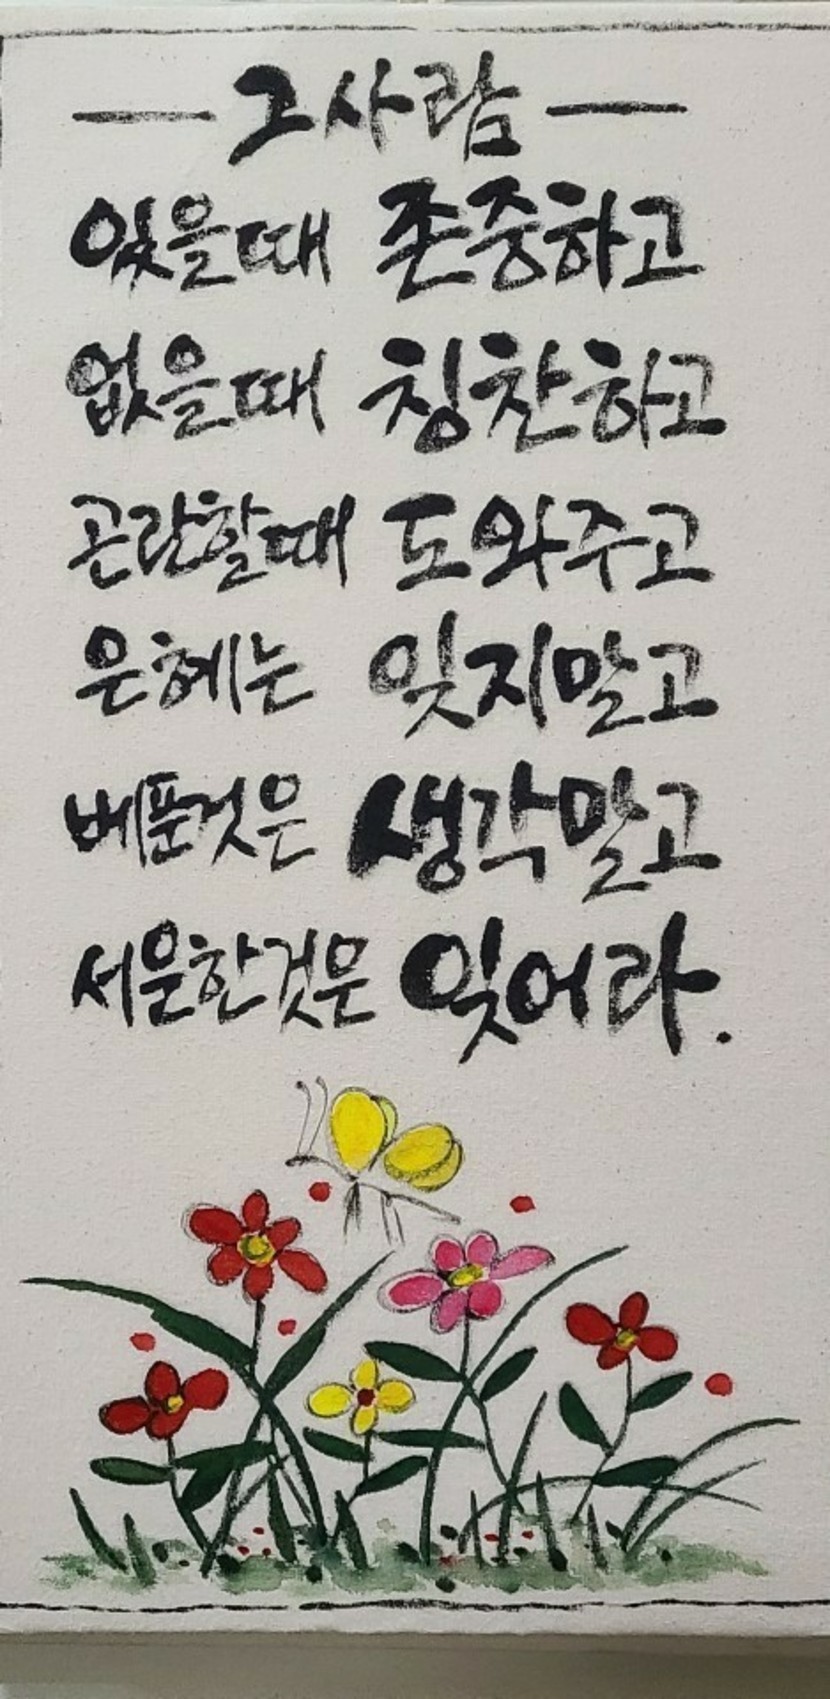 그 사람
있을때 존중하고
없을때 칭찬하고
곤란할때 도와주고
은혜는 잊지말고
베푼것은 생각말고
서운한것은 잊어라.